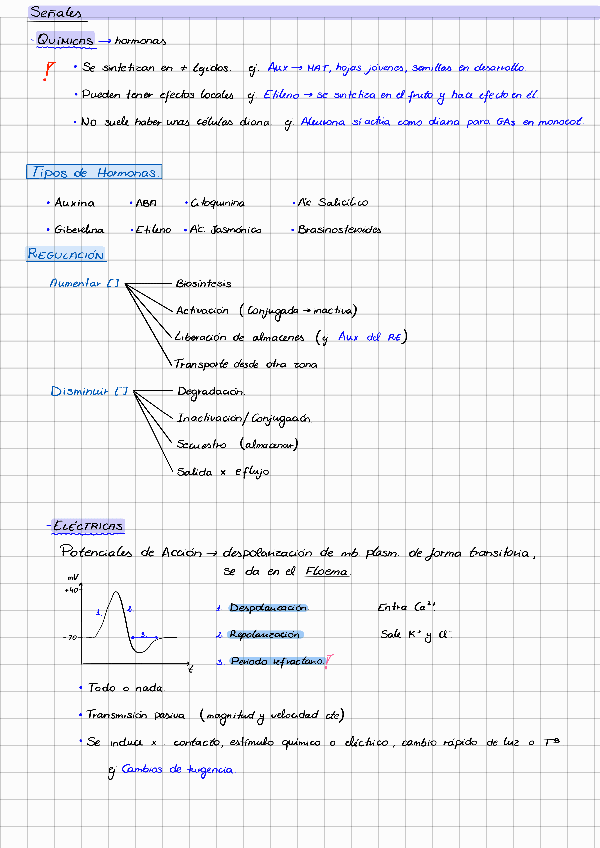 Señales
· Químicas → hormonas
• Se sintetizan en + tejidos. ej. Aux → MAT, hojas jóvenes, semillas en desarrollo.
• Pueden tener efectos locales ej Etileno → se sintetiza en el fruto y hace efecto en él.
• No suele haber unas células diana ej Aleurona sí actúa como diana para GAs en monocot.
Tipos de Hormonas.
• Auxina • ABA • Citoquinina • Ac Salicílico
• Giberelina • Etileno • Ac. Jasmónico • Brasinosteroides
REGULACIÓN
Aumentar []
Biosíntesis
Activación (Conjugada → inactiva)
Liberación de almacenes (ej Aux del RE)
Transporte desde otra zona
Disminuir []
Degradación.
Inactivación/Conjugación
Secuestro (almacenar)
Salida x eflujo
- ELÉCTRICAS
Potenciales de Acción → despolarización de mb plasm. de forma transitoria,
se da en el Floema.
mV
+40
-70
1. 2. 3.
t
1. Despolarización. Entra Ca²⁺
2. Repolarización Sale K⁺ y Cl⁻
3. Periodo refractario.
• Todo o nada.
• Transmisión pasiva (magnitud y velocidad cte)
• Se induce x. contacto, estímulo químico o eléctrico, cambio rápido de luz o Tª
ej Cambios de turgencia.